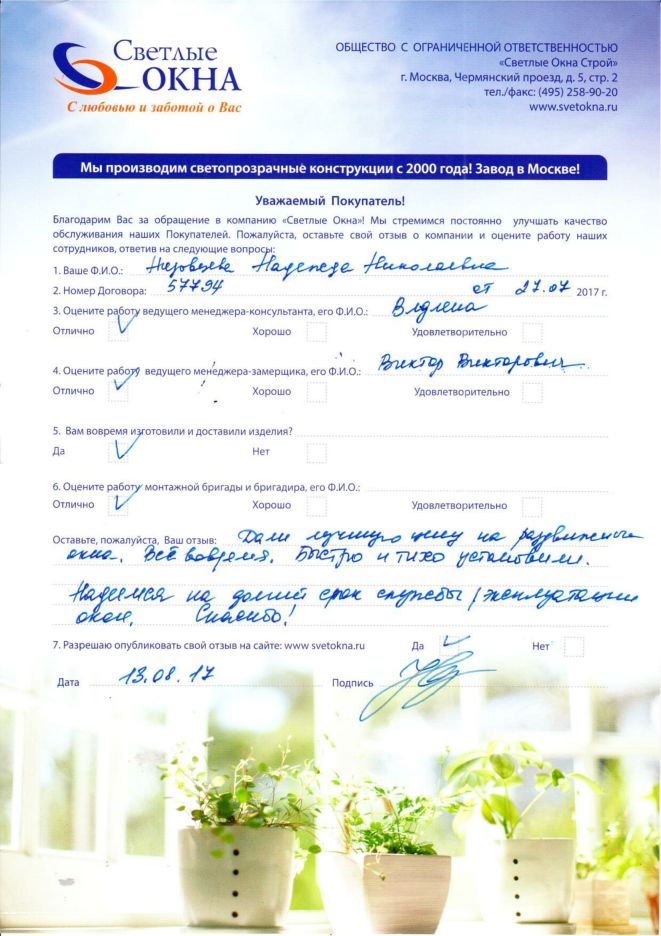 Светлые
ОКНА
С любовью и заботой о Вас
ОБЩЕСТВО С ОГРАНИЧЕННОЙ ОТВЕТСТВЕННОСТЬЮ
«Светлые Окна Строй»
г. Москва, Чермянский проезд, д. 5, стр. 2
тел./факс: (495) 258-90-20
www.svetokna.ru
Мы производим светопрозрачные конструкции с 2000 года! Завод в Москве!
Уважаемый Покупатель!
Благодарим Вас за обращение в компанию «Светлые Окна»! Мы стремимся постоянно улучшать качество
обслуживания наших Покупателей. Пожалуйста, оставьте свой отзыв о компании и оцените работу наших
сотрудников, ответив на следующие вопросы:
1. Ваше Ф.И.О.: Надежда Николаевна
2. Номер Договора: 57794 от 27.07 2017 г.
3. Оцените работу ведущего менеджера-консультанта, его Ф.И.О.: Владлена
Отлично Хорошо Удовлетворительно
4. Оцените работу ведущего менеджера-замерщика, его Ф.И.О.: Виктор Викторович
Отлично Хорошо Удовлетворительно
5. Вам вовремя изготовили и доставили изделия?
Да Нет
6. Оцените работу монтажной бригады и бригадира, его Ф.И.О.:
Отлично Хорошо Удовлетворительно
Оставьте, пожалуйста, Ваш отзыв: Дали лучшую цену на раздвижные
окна. Всё вовремя. Быстро и тихо установили.
Надеемся на долгий срок службы/эксплуатации
окон. Спасибо!
7. Разрешаю опубликовать свой отзыв на сайте: www svetokna.ru Да Нет
Дата 13.08.17 Подпись